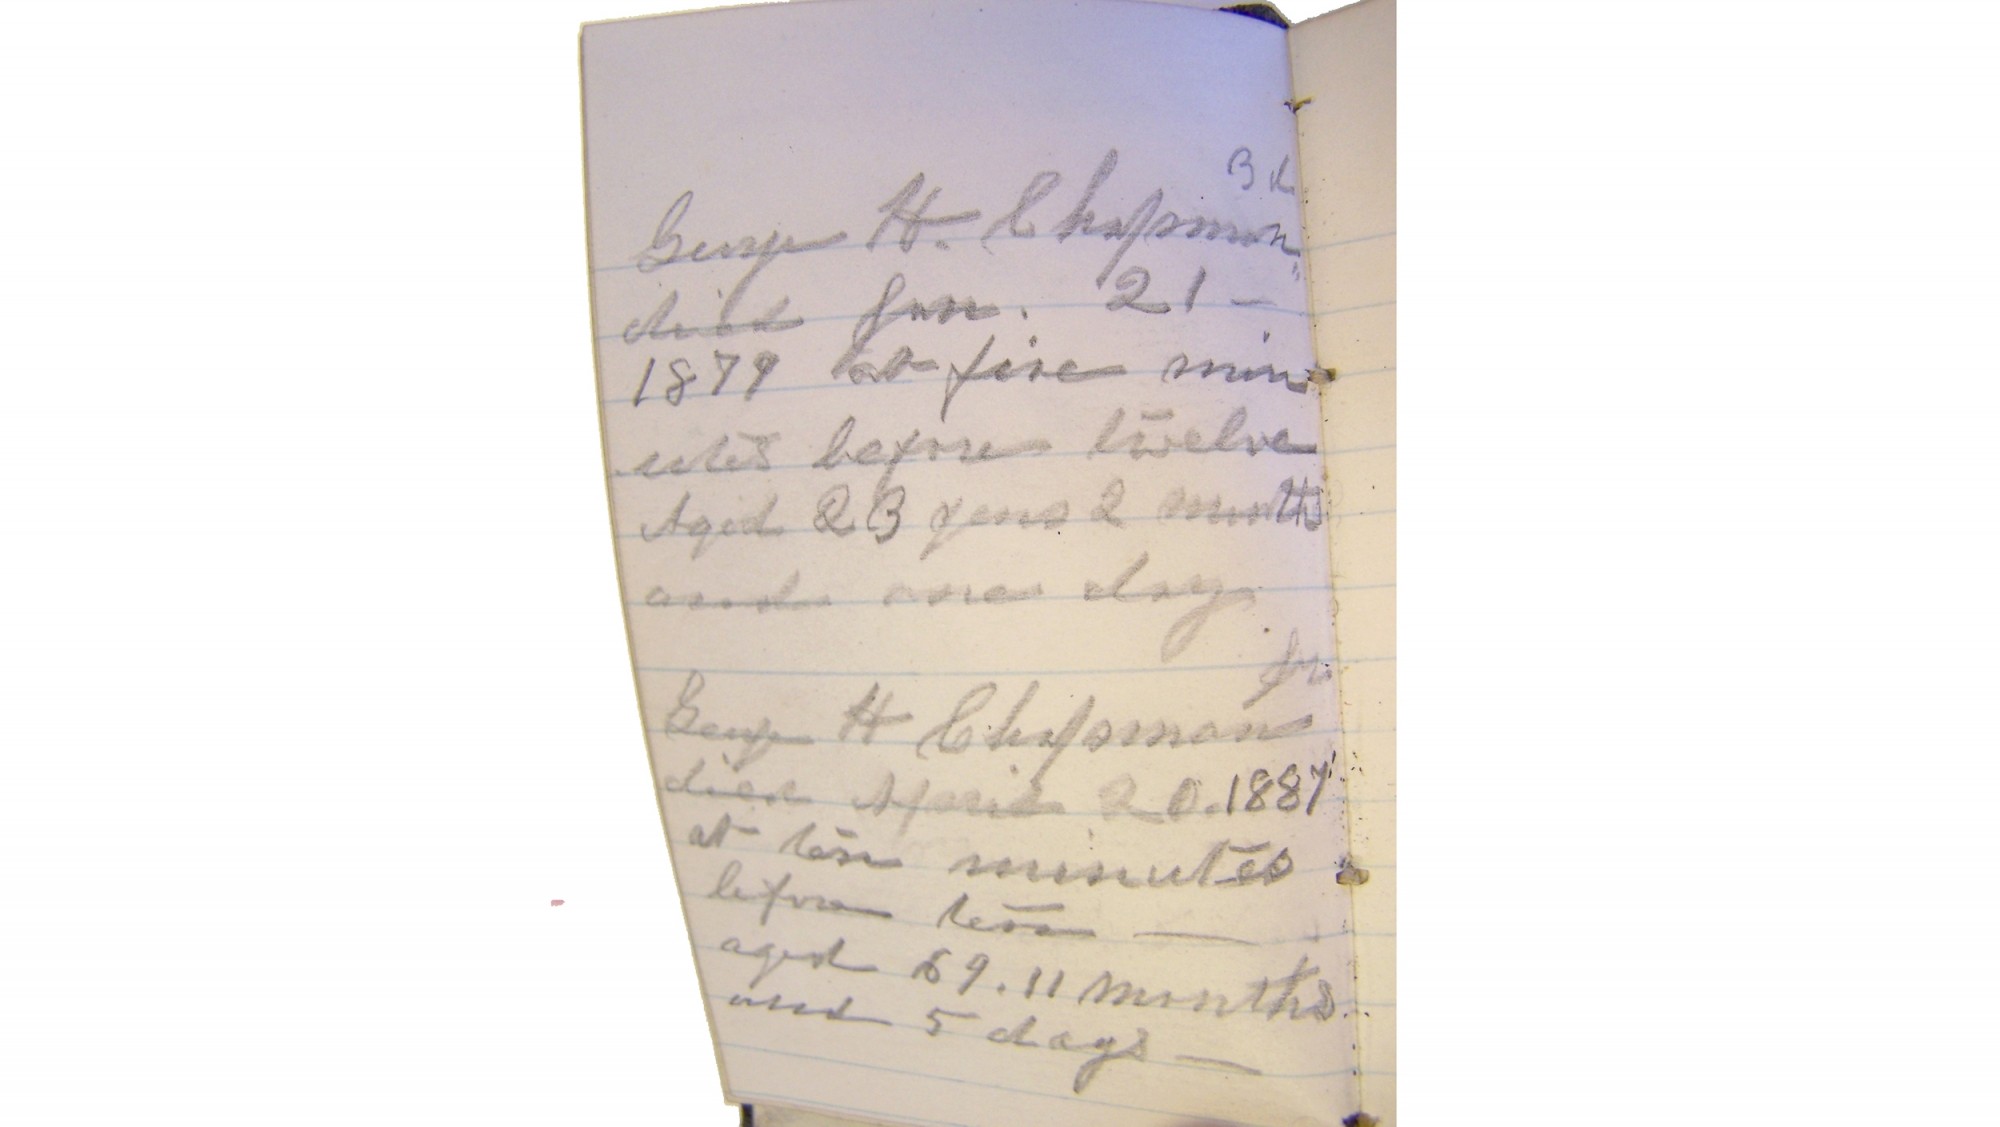 3d
George H. Chapman
died Jan. 21 —
1879 at five min
utes before twelve
Aged 23 years 2 months
and one day
Jr.
George H Chapman
died April 20. 1887
at ten minutes
before ten —
aged 69. 11 months
and 5 days —